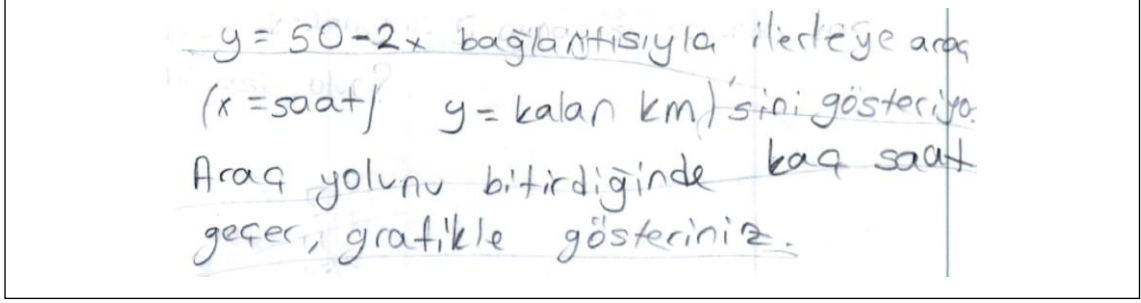 y = 50-2x bağlantısıyla ilerleye araç
(x = saat) y = kalan km)'sini gösteriyo.
Araç yolunu bitirdiğinde kaç saat
geçer, grafikle gösteriniz.